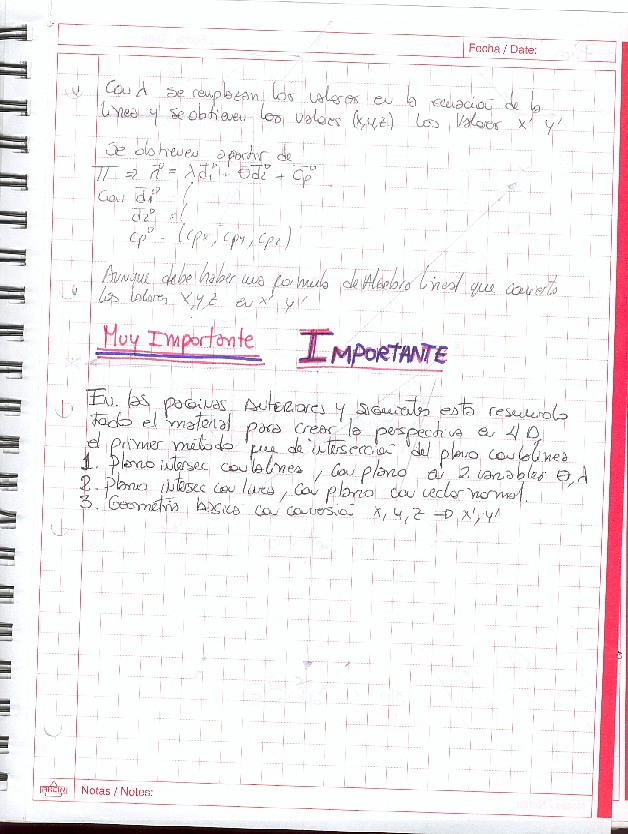 Fecha / Date:
Con λ se remplazan los valores en la ecuacion de la
linea y se obtienen los valores (x,y,z) los valores x' y'
Se obtienen a partir de
Π => n° = λ d1° + θ d2° + cp°
Con d1°
d2° =
cp° = (cpx, cpy, cpz)
Aunque debe haber una formula de Algebra lineal que convierta
los valores x,y,z en x' y'
Muy Importante IMPORTANTE
En las paginas anteriores y siguientes esta resumido
todo el material para crear la perspectiva en 4D,
el primer metodo que de interseccion del plano con la linea
1. Plano intersec con la linea, con plano en 2 variables θ, λ
2. Plano intersec con linea, con plano con vector normal.
3. Geometria basica con conversion x, y, z => x', y'
Notas / Notes: